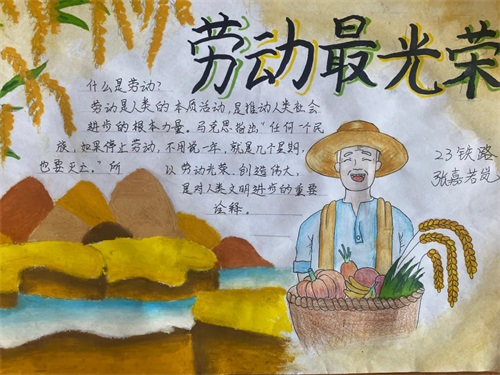 劳动最光荣
什么是劳动?
劳动是人类的本质活动,是推动人类社会
进步的根本力量。马克思指出"任何一个民
族,如果停止劳动,不用说一年,就是几个星期,
也要灭亡。"所 以劳动光荣、创造伟大,
是对人类文明进步的重要
诠释。
23铁路
张嘉若